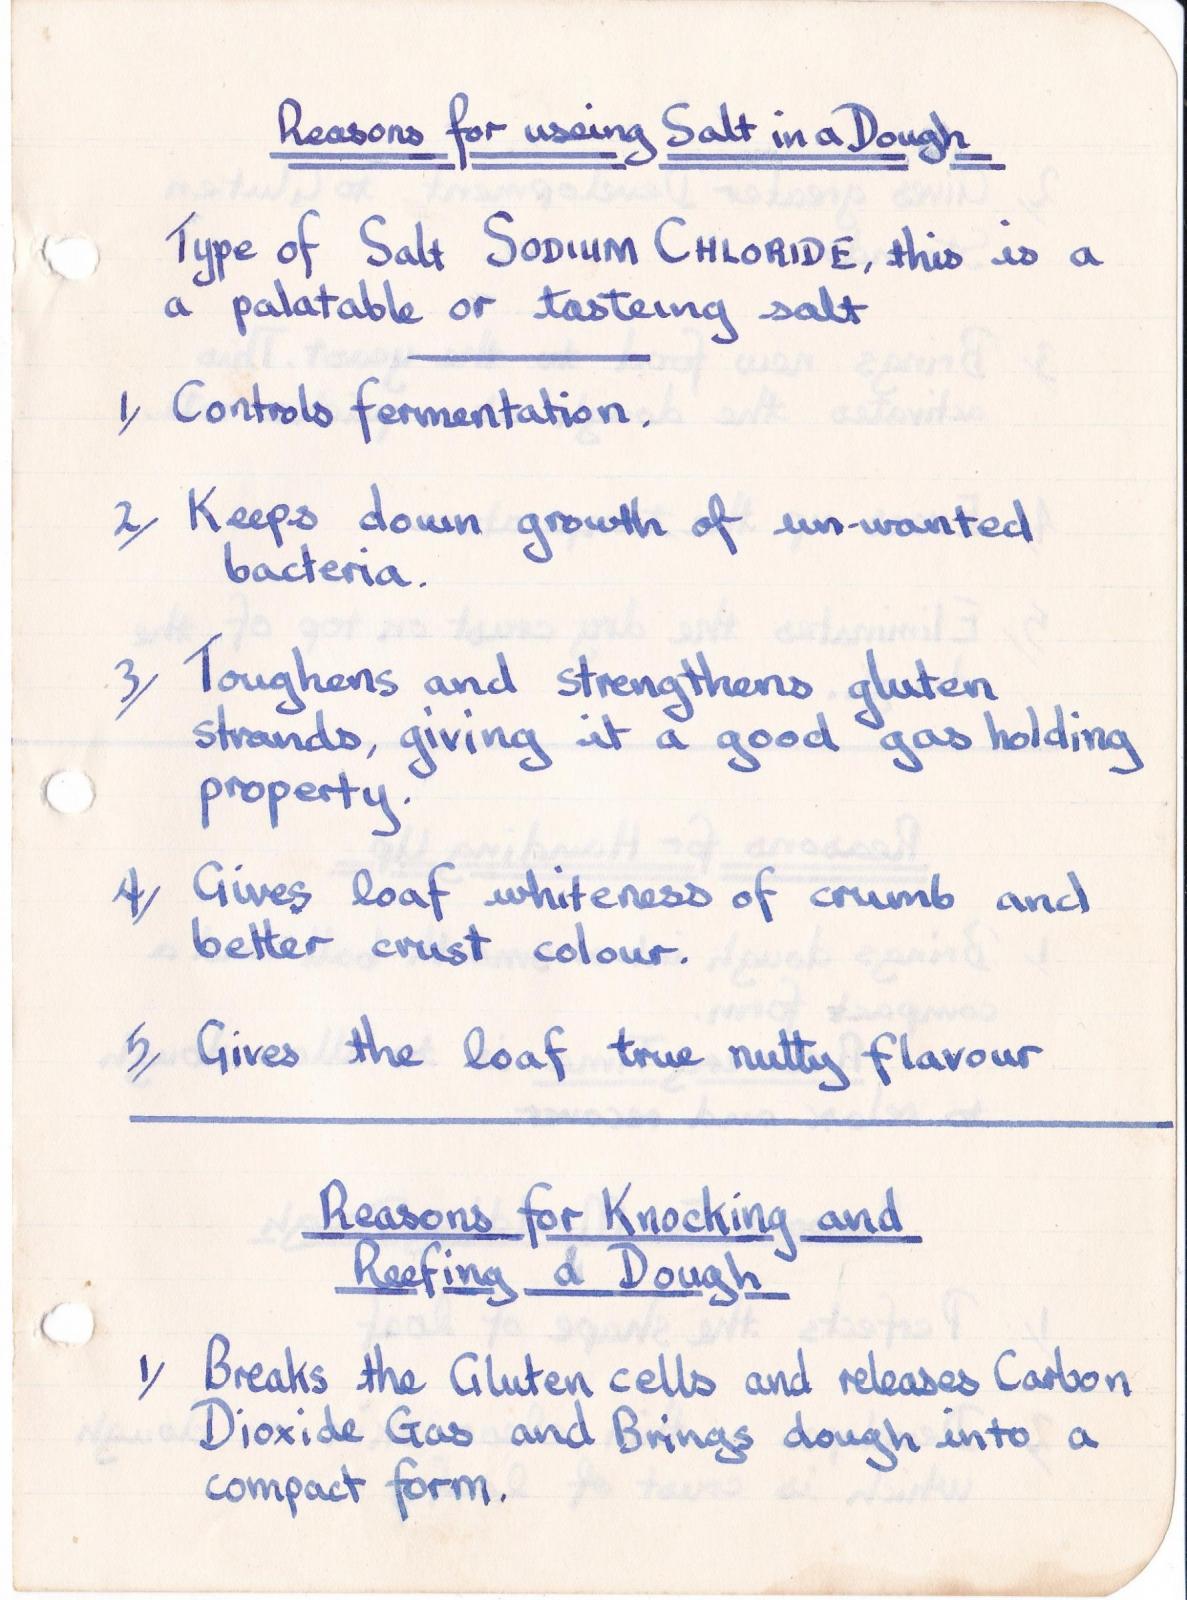 Reasons for useing Salt in a Dough
Type of Salt SODIUM CHLORIDE, this is a
a palatable or tasteing salt
1/ Controls fermentation.
2/ Keeps down growth of un-wanted
bacteria.
3/ Toughens and strengthens gluten
strands, giving it a good gas holding
property.
4/ Gives loaf whiteness of crumb and
better crust colour.
5/ Gives the loaf true nutty flavour
Reasons for Knocking and
Reefing a Dough
1/ Breaks the Gluten cells and releases Carbon
Dioxide Gas and Brings dough into a
compact form.